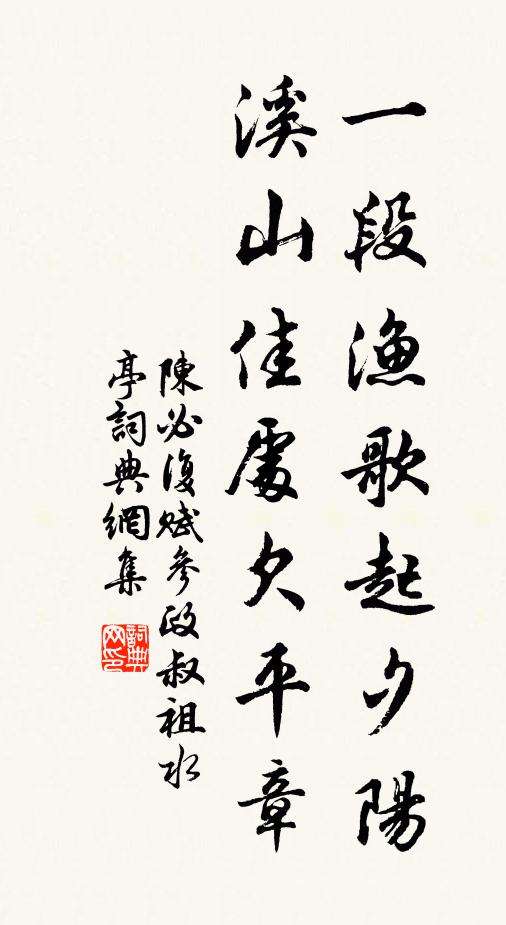 一段漁歌起夕陽
溪山佳處欠平章
陳必復賦參政叔祖水
亭詞典網集
詞典網印